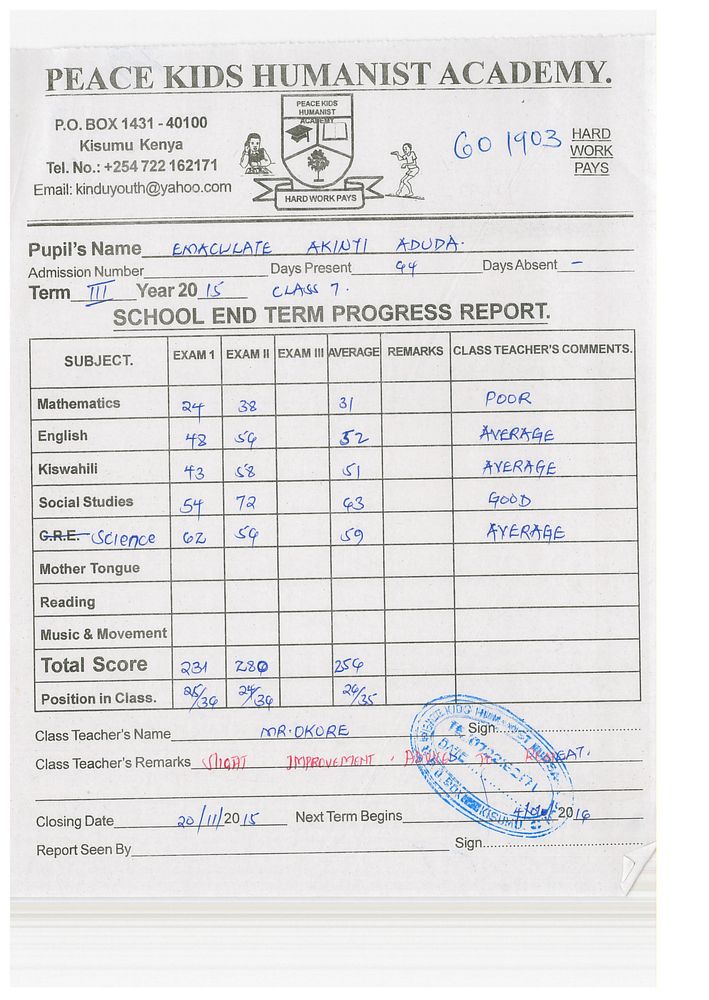 PEACE KIDS HUMANIST ACADEMY.
P.O. BOX 1431 - 40100
Kisumu Kenya
Tel. No.: +254 722 162171
Email: kinduyouth@yahoo.com
PEACE KIDS
HUMANIST
ACADEMY
HARD WORK PAYS
GO 1903
HARD
WORK
PAYS
Pupil's Name EMACULATE AKINYI ADUDA.
Admission Number Days Present 94 Days Absent –
Term III Year 2015 CLASS 7.
SCHOOL END TERM PROGRESS REPORT.
SUBJECT. EXAM 1 EXAM II EXAM III AVERAGE REMARKS CLASS TEACHER'S COMMENTS.
Mathematics 24 38 31 POOR
English 48 56 52 AVERAGE
Kiswahili 43 58 51 AVERAGE
Social Studies 54 72 63 GOOD
G.R.E. Science 62 56 59 AVERAGE
Mother Tongue
Reading
Music & Movement
Total Score 231 280 256
Position in Class. 25/36 24/36 26/35
Class Teacher's Name MR. OKORE Sign
Class Teacher's Remarks SLIGHT IMPROVEMENT. TO REPEAT.
Closing Date 20/11/2015 Next Term Begins 2016
Report Seen By Sign